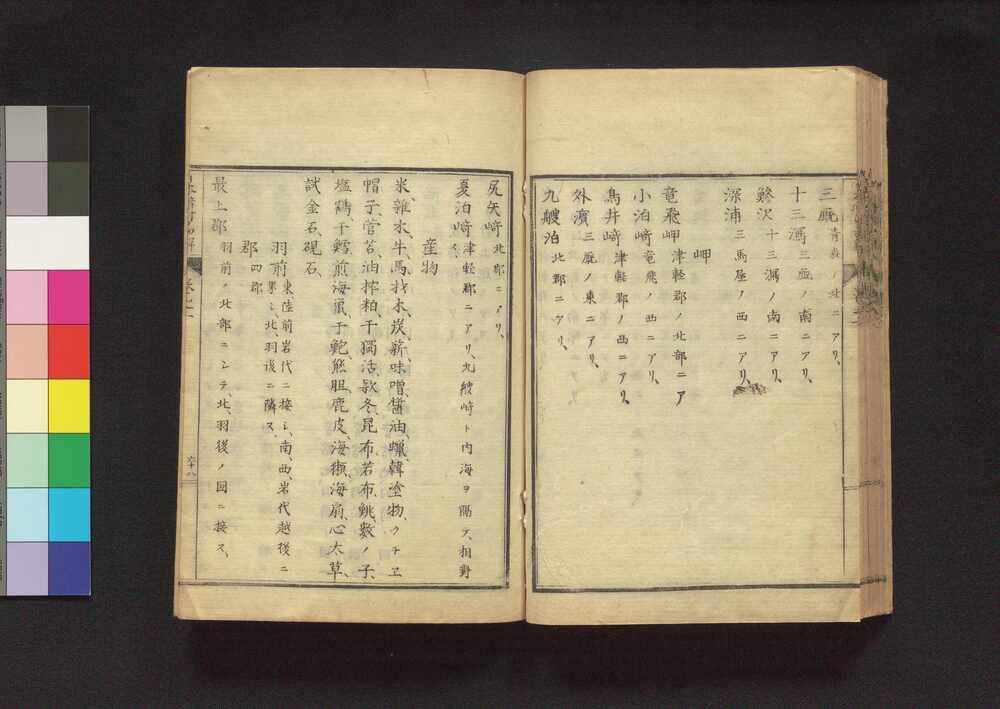 三厩 青森ノ北ニアリ、
十三潟 三厩ノ南ニアリ、
鰺沢 十三潟ノ南ニアリ、
深浦 三馬屋ノ西ニアリ、
岬
竜飛岬 津軽郡ノ北部ニア
小泊崎 竜飛ノ西ニアリ、
鳥井崎 津軽郡ノ西ニアリ、
外濱 三厩ノ東ニアリ、
九艘泊 北郡ニアリ、
尻矢崎 北郡ニアリ、
夏泊崎 津軽郡ニアリ、九艘崎ト内海ヲ隔テ、相對
ス、
産物
米、雜木、牛、馬、材木、炭、薪、味噌、醤油、蝋、韓塗物、クチヱ
帽子、菅苫、油搾粕、干獨活、欵冬、昆布、若布、鮡、數ノ子、
塩鷄、干鱈、煎海鼠、于鮑、熊胆、鹿皮、海獺、海扇、心太草、
試金石、硯石、
羽前 東陸前岩代ニ接シ、南、西、岩代越後ニ
界シ、北、羽後ニ隣ス、
郡 四郡
最上郡 羽前ノ北部ニシテ、北、羽後ノ国ニ接ス、
六十八